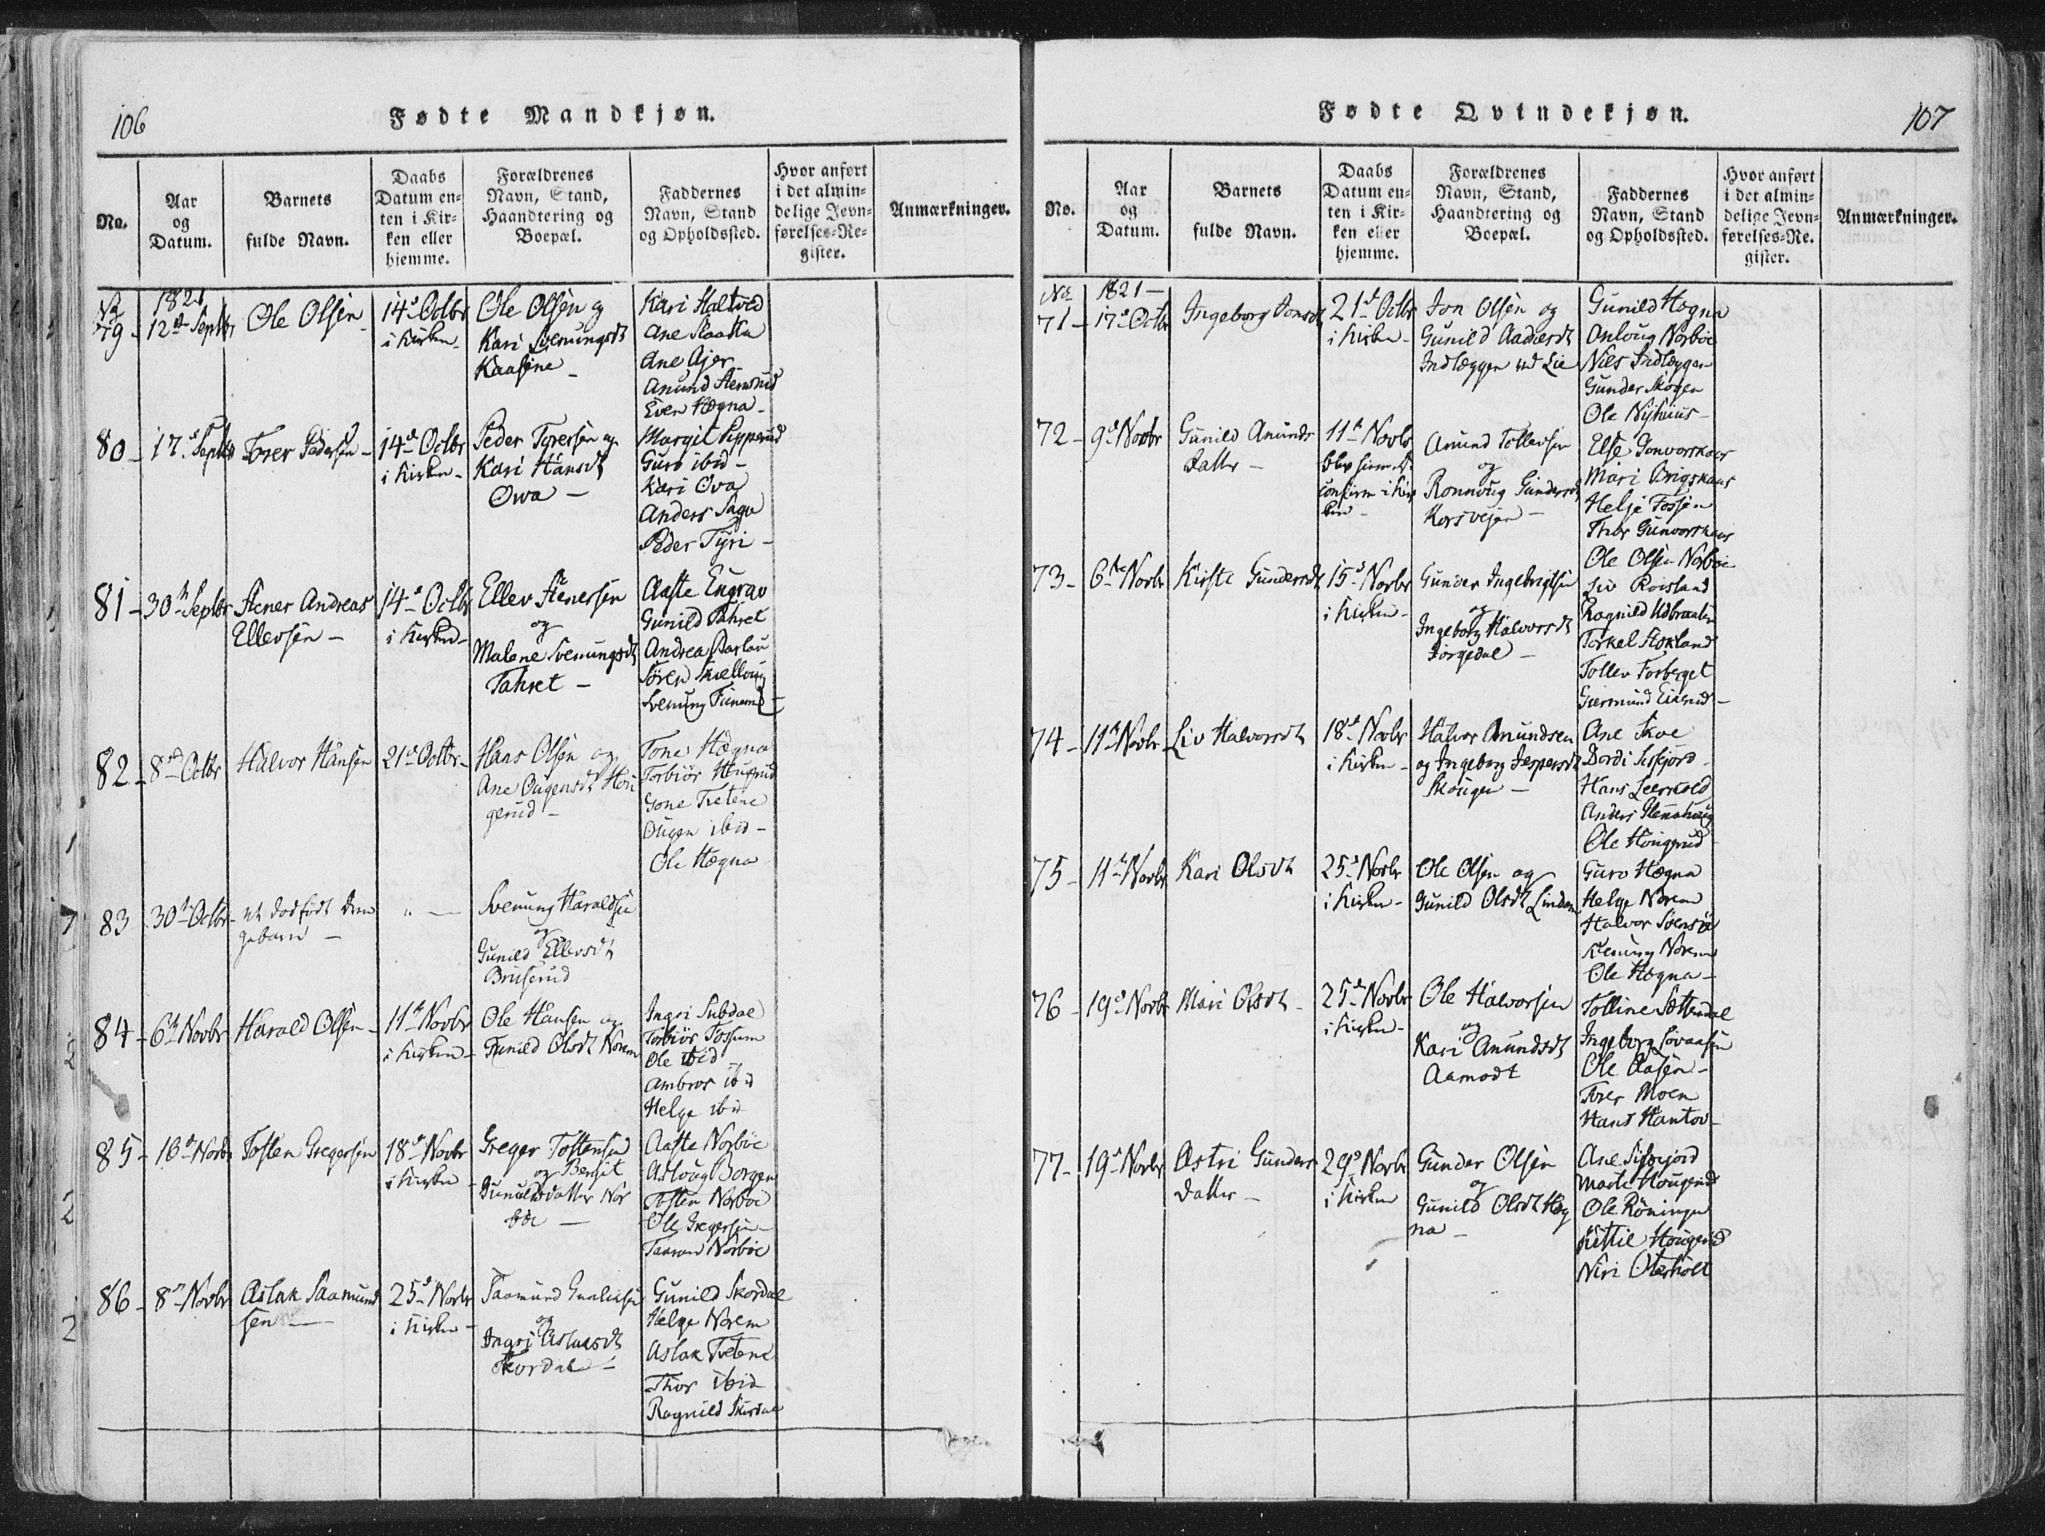 106
Fødte Mandkjøn.
No.
Aar og Datum.
Barnets fulde Navn.
Daabs Datum enten i Kirken eller hjemme.
Forældrenes Navn, Stand, Haandtering og Boepæl.
Faddernes Navn, Stand og Opholdssted.
Hvor anført i det almindelige Jevnførelses-Register.
Anmærkninger.
No 1821
79 - 12 Septbr
Ole Olsen
14 Octbr
i Kirken
Ole Olsen og
Kari Svenungsdt
Kaasene
Kari Haltved
Ane Slaatta
Ane Ajer
Anund Stensrud
Even Hægna
80 - 17 Septbr
Torer Pedersen
14 Octbr
i Kirken
Peder Tyrersen og
Kari Hansdt
Owa
Margit Pipperud
Guro ibid
Kari Ova
Anders Saga
Peder Tyri
81 - 30 Septbr
Stener Andreas
Ellevsen
14 Octbr
i Kirken
Ellev Stenersen
og
Malene Svenungsdt
Tahret
Aaste Engrav
Gunild Tahret
Andrea Barlau
Sören
Svenung
82 - 8 Octbr
Halvor Hansen
21 Octbr
Hans Olsen og
Ane Ougensdt Höi
gerud
Tone Hægna
Torbiör Hougrud
Gone Tretene
Ougen ibid
Ole Hægna
83 30 Octbr
et dödfödt Dren
gebarn
" —
Svenung Haraldsen
og
Gunild Ellevsdt
Bruserud
84 - 6 Novbr
Harald Olsen
11 Novbr
i Kirken
Ole Hansen og
Gunild Olsdt Norem
Ingri Subdal
Torbiör Fossum
Ole ibid
Ambros ibid
Helge ibid
85 - 16 Novbr
Tosten Gregersen
18 Novbr
i Kirken
Greger Tostensen
og Bergit
Gunulsdatter Nor
böe
Aaste Norböe
Aslaug Borgen
Tosten Norböe
Ole Gregersen
Taaran Norböe
86 - 8 Novbr
Aslak Saamund
sen
25 Novbr
i Kirken
Saamund Gunleiksen
og
Ingri Aslaksdt
Skordal
Gunild Skordal
Helge Norem
Aslak Tretene
Thor ibid
Ragnild Skordal
107
Fødte Qvindekjøn.
No.
Aar og Datum.
Barnets fulde Navn.
Daabs Datum enten i Kirken eller hjemme.
Forældrenes Navn, Stand, Haandtering og Boepæl.
Faddernes Navn, Stand og Opholdssted.
Hvor anført i det almindelige Jevnførelses-Register.
Anmærkninger.
No 1821
71 - 17 Octbr
Ingeborg Jonsdt
21 Octbr
i Kirken
Jon Olsen og
Gunild Aadnesdt
Indlæggen ved Lie
Gunild Hægna
Onloug Norböe
Niels Indlæggen
Gunder Skogen
Ole Nyhuus
72 - 9 Novbr
Gunild Anunds
Datter
11 Novbr
blev hiemed.
confirm i Kir
ken
Anund Tollevsen
og
Ronnoug Gundersdt
Korsvejen
Else Gonvorskaas
Mari Brigskaas
Helje Fossen
Thor Gunvorskaas
73 - 6 Novbr
Kirste Gundersdt
15 Novbr
i Kirken
Gunder Ingebrigtsen
og
Ingeborg Halvorsdt
Jörgedal
Ole Olsen Norböe
Liv Roisland
Ragnild Udbraaten
Torkel Stokland
Tollev Forberget
Giermund Eikerud
74 - 11 Novbr
Liv Halvorsdt
18 Novbr
i Kirken
Halvor Amundsen
og Ingeborg Jespersdt
Skougen
Ane Skoe
Dordi Sisjord
Hans Leerkold
Anders Stenshaug
Ole Hougerud
75 - 11 Novbr
Kari Olsdt
25 Novbr
i Kirken
Ole Olsen og
Gunild Olsdt Lindem
Guro Hægna
Helge Norem
Halvor
Svenung Norem
Ole Hægna
76 - 19 Novbr
Mari Olsdt
25 Novbr
i Kirken
Ole Halvorsen
og
Kari Anundsdt
Aamodt
Tolline Sötterdal
Ingeborg Lövaasen
Ole Aasen
Torer Moen
Hans Hantov
77 - 19 Novbr
Astri Gunders
Datter
29 Novbr
i Kirken
Gunder Olsen
og
Gunild Olsdt Hæg
na
Ane Sisjord
Marte Hougerud
Ole Röningen
Kittil Hougerud
Niri Oterholt